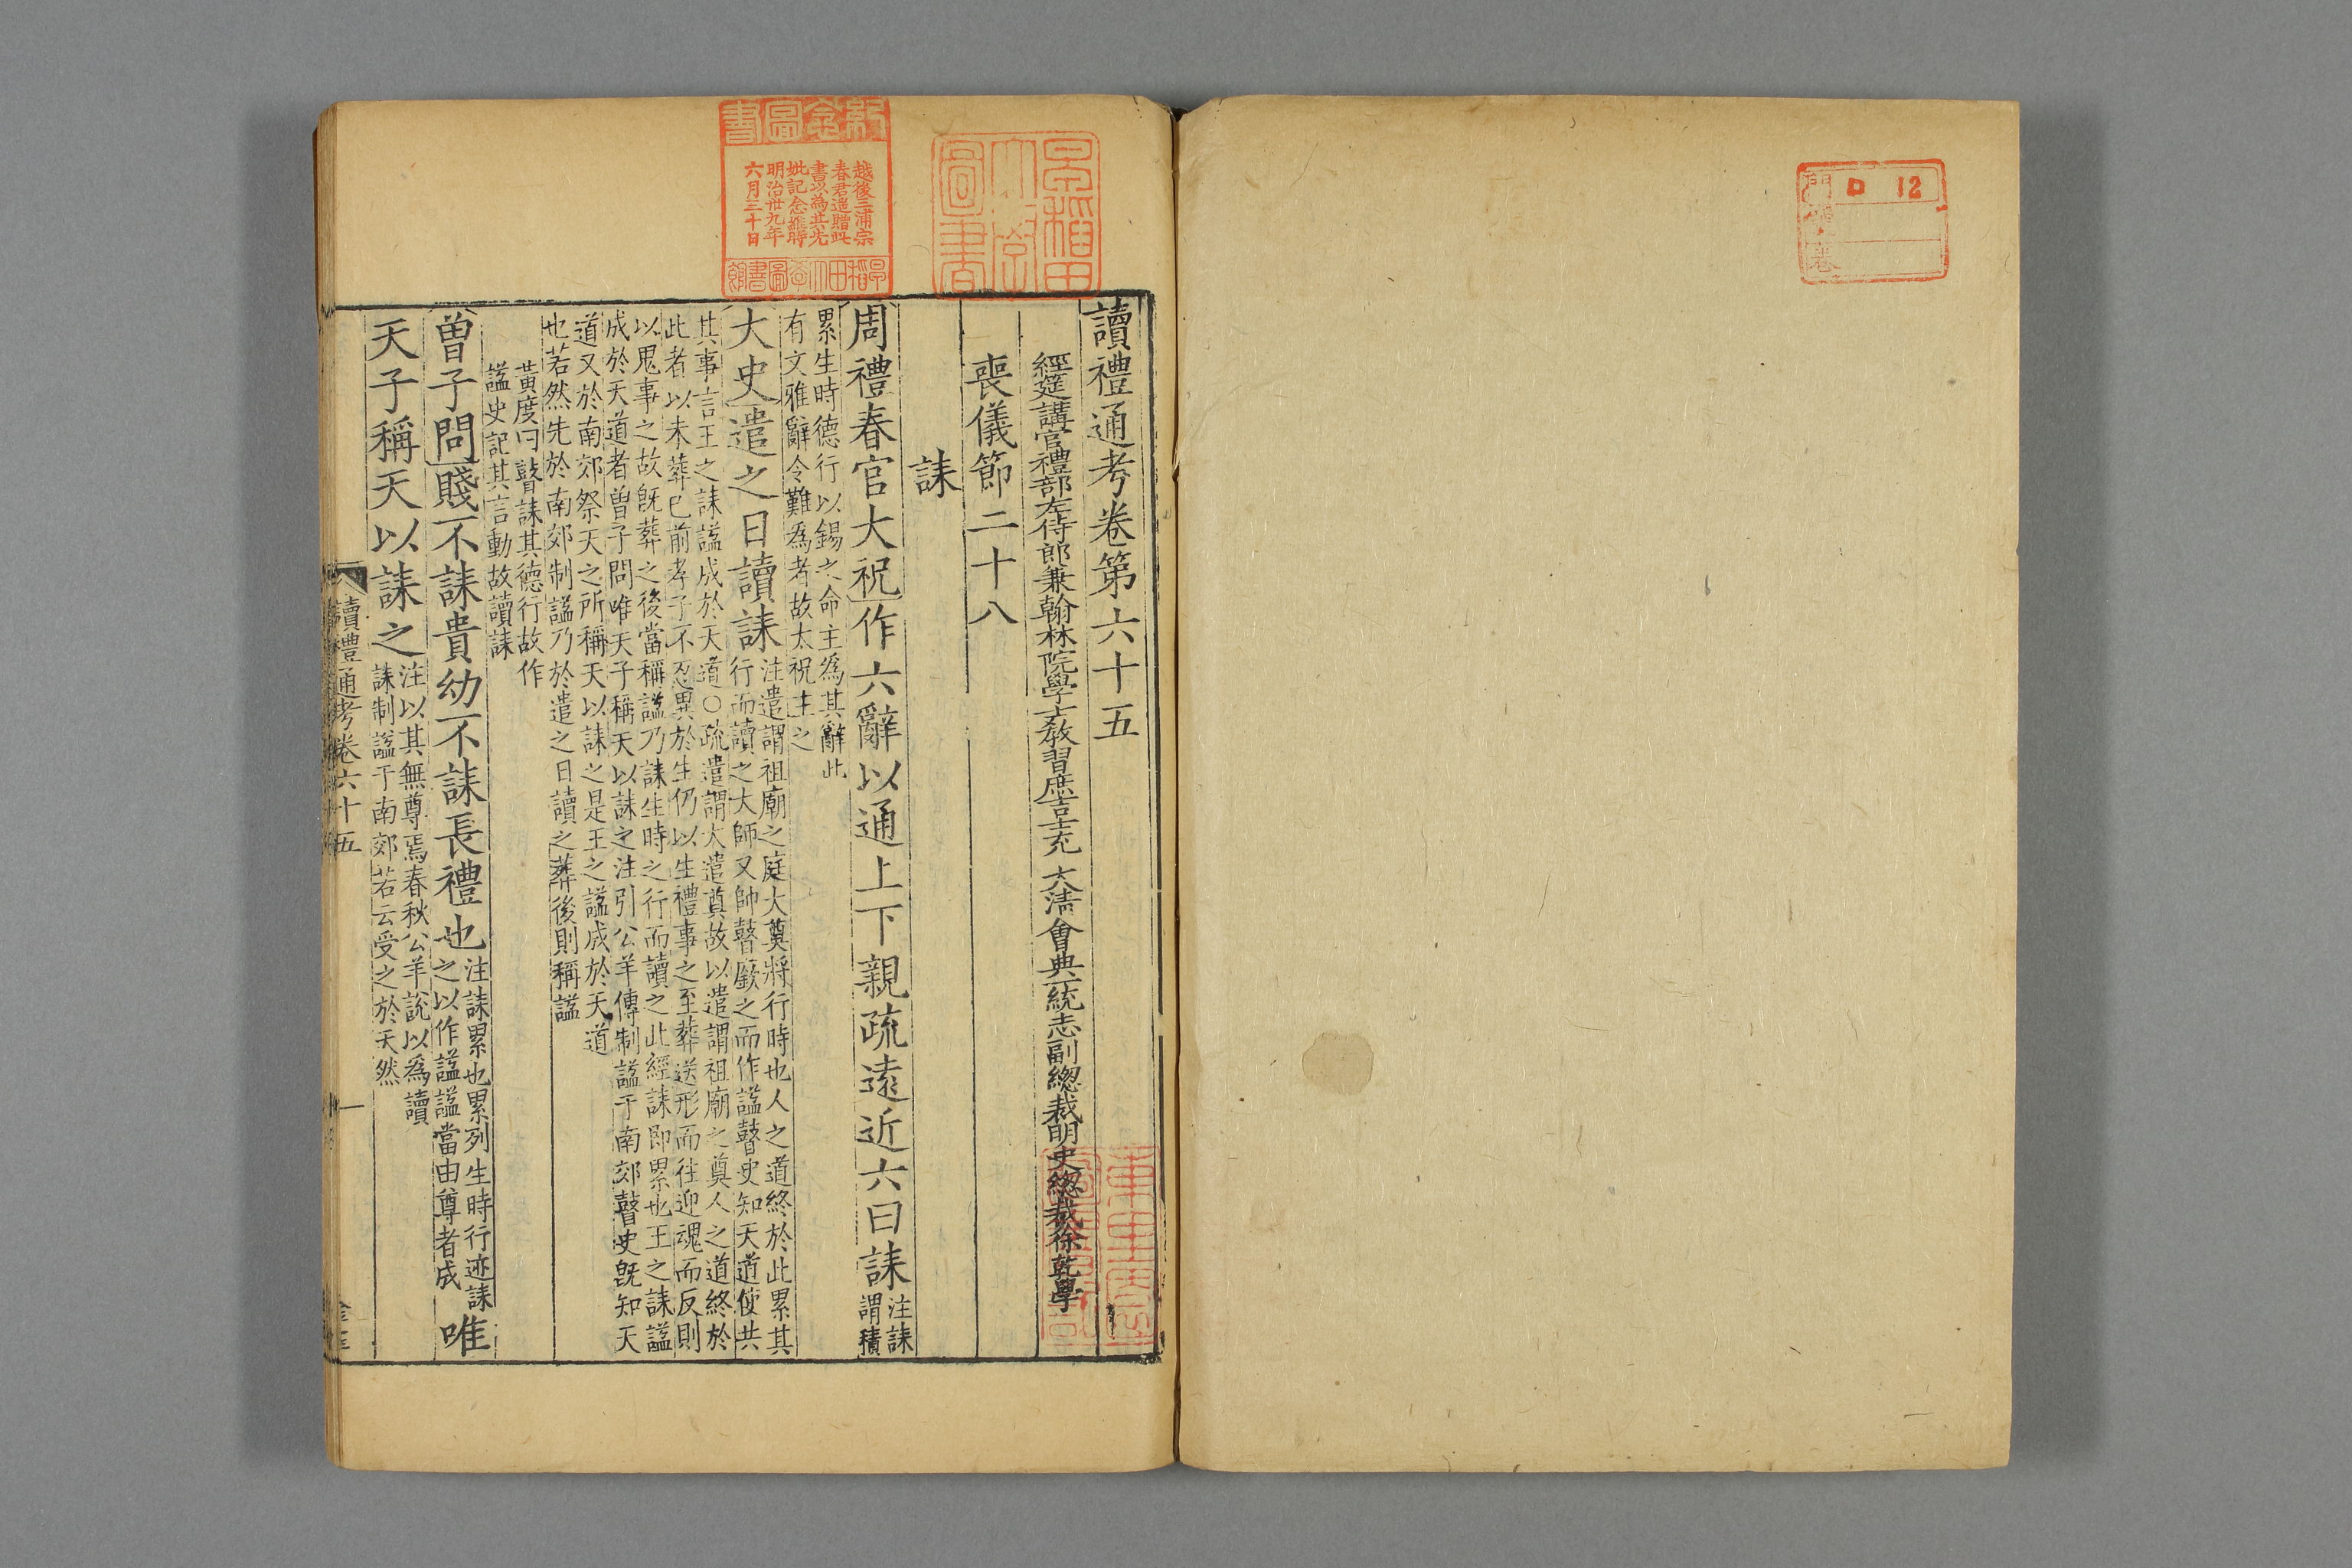 門 ロ 12
號
卷
早稲田大學圖書
紀念圖書
越後三浦宗
春君遥贈此
書以為其先
妣記念維時
明治卅九年
六月三十日
早稲田大學圖書館
讀禮通考卷第六十五
經筵講官禮部左侍郎兼翰林院學士教習庶吉士充 大清會典一統志副總裁明史總裁徐乾學
喪儀節二十八
誄
周禮春官大祝作六辭以通上下親疏遠近六曰誄注誄
謂積
累生時德行以錫之命主爲其辭此
有文雅辭令難爲者故太祝主之
大史遣之日讀誄注遣謂祖廟之庭大奠將行時也人之道終於此累其
行而讀之大師又帥瞽廞之而作謚瞽史知天道使共
其事言王之誄謚成於天道○疏遣謂大遣奠故以遣謂祖廟之奠人之道終於
此者以未葬已前孝子不忍異於生仍以生禮事之至葬送形而往迎魂而反則
以鬼事之故旣葬之後當稱謚乃誄生時之行而讀之此經誄即累也王之誄謚
成於天道者曾子問唯天子稱天以誄之注引公羊傳制謚于南郊瞽史旣知天
道又於南郊祭天之所稱天以誄之是王之謚成於天道
也若然先於南郊制謚乃於遣之日讀之葬後則稱謚
黃度曰瞽誄其德行故作
謚史記其言動故讀誄
曾子問賤不誄貴幼不誄長禮也注誄累也累列生時行迹誄
之以作謚謚當由尊者成唯
天子稱天以誄之注以其無尊焉春秋公羊說以爲讀
誄制謚于南郊若云受之於天然
讀禮通考卷六十五
一